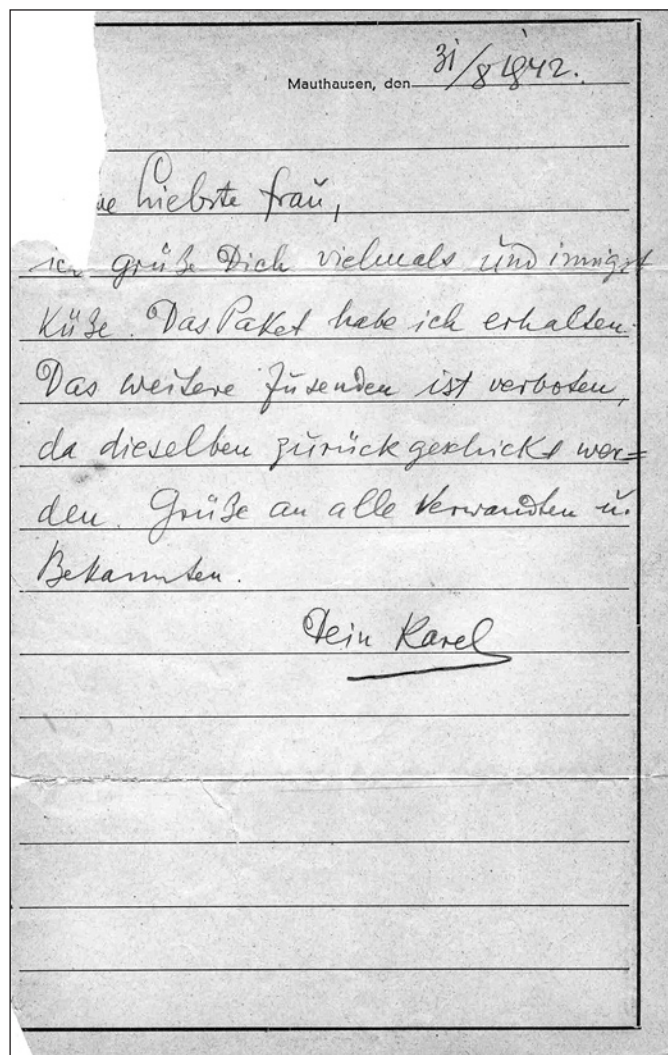 Mauthausen, den 31/8 1942.
ne liebste Frau,
ich grüße Dich vielmals und innigst
Küße. Das Paket habe ich erhalten.
Das weitere Zusenden ist verboten,
da dieselben zurückgeschickt wer=
den. Grüße an alle Verwandten u.
Bekannten.
Dein Karel